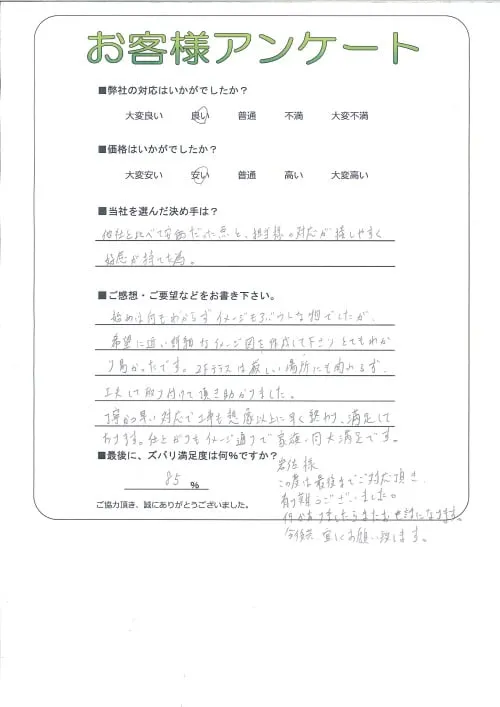 お客様アンケート
■弊社の対応はいかがでしたか？
大変良い 良い 普通 不満 大変不満
■価格はいかがでしたか？
大変安い 安い 普通 高い 大変高い
■当社を選んだ決め手は？
他社と比べて安価だった点と、担当様の対応が接しやすく
好感が持てた為。
■ご感想・ご要望などをお書き下さい。
始めは何もわからずイメージもぶつしな物でしたが、
希望に近い詳細なイメージ図を作成して下さりとてもわか
り易かったです。2Fテラスは厳しい場所にも関わらず、
工夫して取り付けて頂き助かりました。
丁寧かつ早い対応で工事も想像以上に早く終わり、満足して
おります。仕上がりもイメージ通りで家族一同大満足です。
■最後に、ズバリ満足度は何%ですか？
85 %
岩佐様
この度は最後までご対応頂き
有難うございました。
何かありましたらまたお世話になります。
今後共、宜しくお願い致します。
ご協力頂き、誠にありがとうございました。